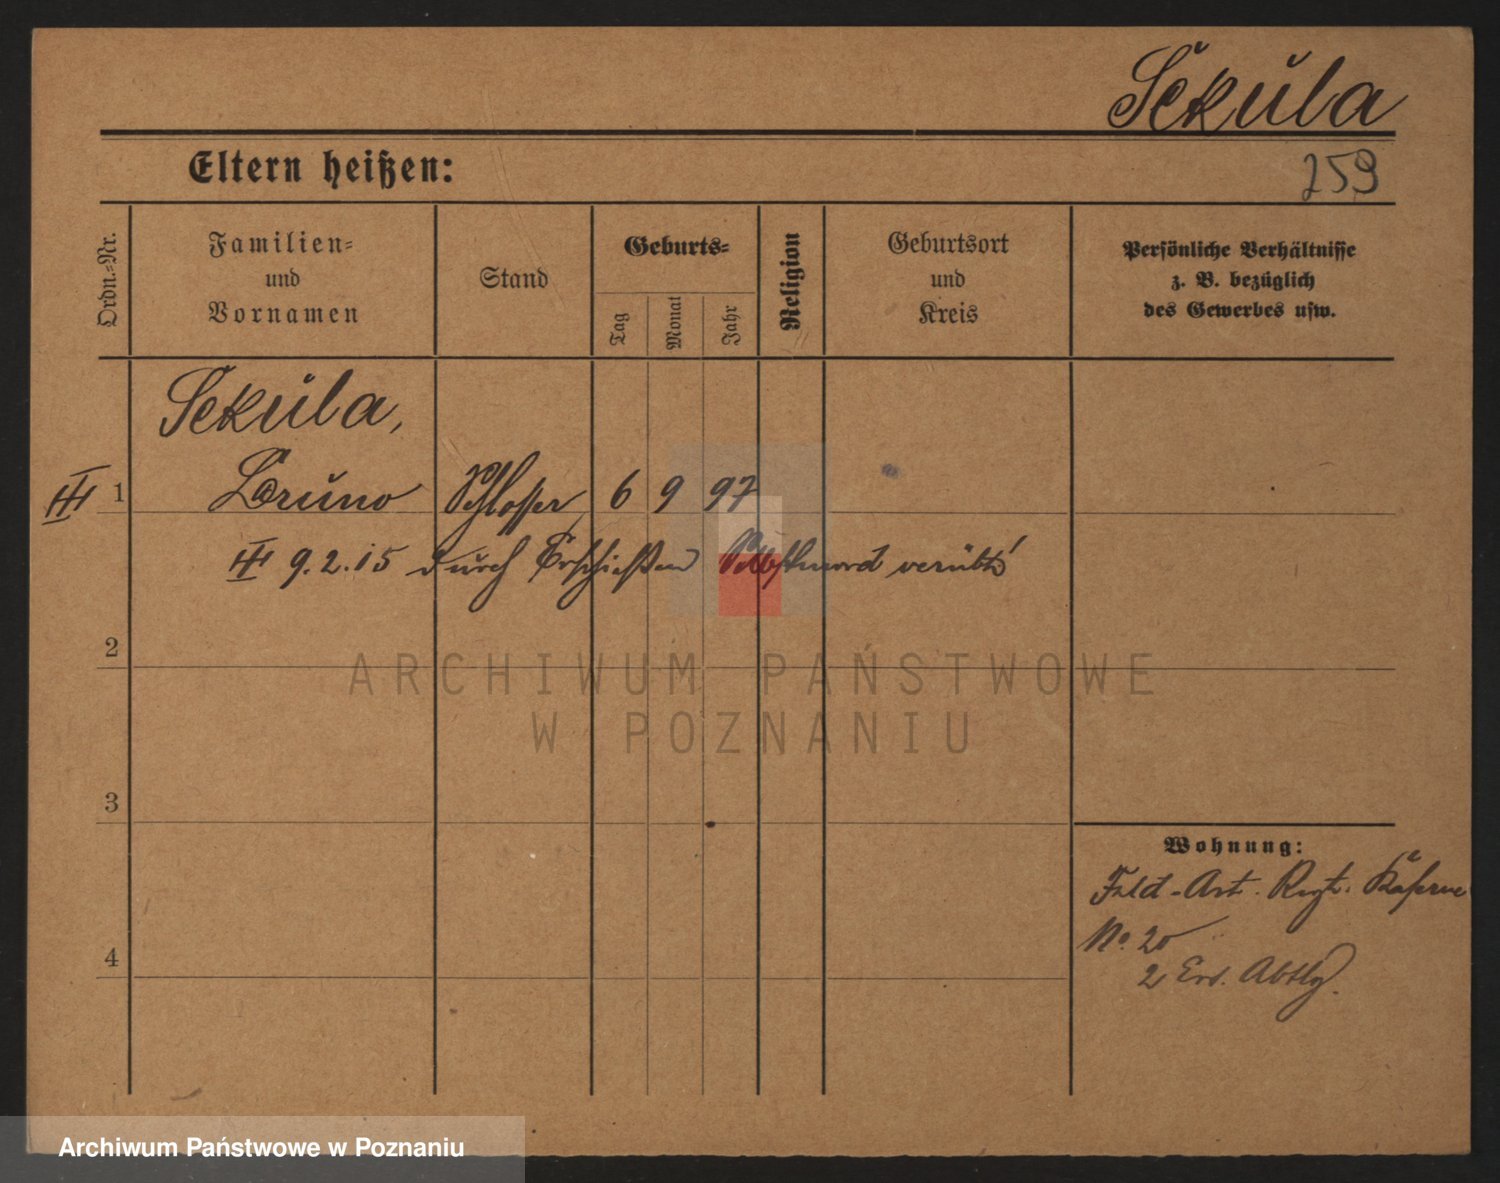 Sekula
Eltern heißen:
259
Ordn.-Nr.
Familien-
und
Vornamen
Stand
Geburts-
Tag
Monat
Jahr
Religion
Geburtsort
und
Kreis
Persönliche Verhältnisse
z. B. bezüglich
des Gewerbes usw.
Sekula,
1 Bruno Schlosser 6 9 97
9.2.15 durch Erschießen Selbstmord verübt!
2
ARCHIWUM PAŃSTWOWE
W POZNANIU
3
Wohnung:
Feld-Art. Regt. Kaserne
No. 20
4
2 Ers. Abtlg.
Archiwum Państwowe w Poznaniu